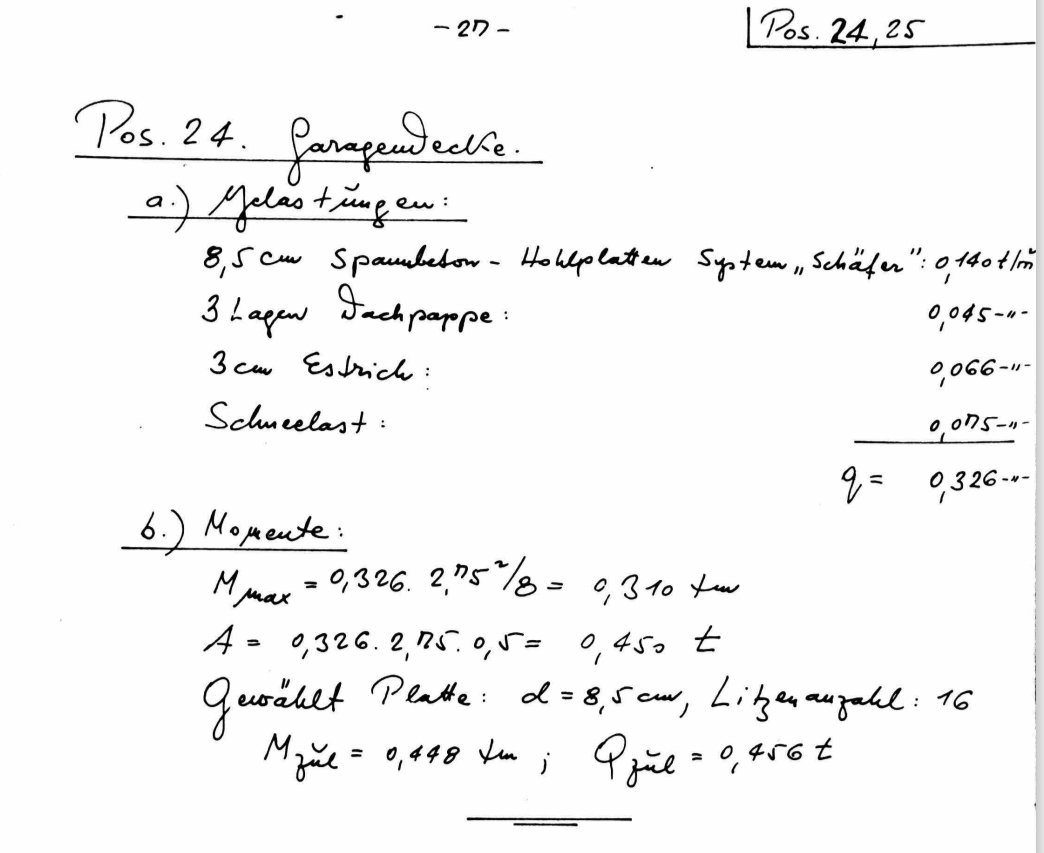 - 27 -
Pos. 24, 25
Pos. 24. Garagendecke.
a.) Belastungen:
8,5 cm Spannbeton - Hohlplatten System „Schäfer": 0,140 t/m²
3 Lagen Dachpappe: 0,045 -"-
3 cm Estrich: 0,066 -"-
Schneelast: 0,075 -"-
q = 0,326 -"-
b.) Momente:
M max = 0,326. 2,75²/8 = 0,310 tm
A = 0,326. 2,75. 0,5 = 0,450 t
Gewählt Platte: d = 8,5 cm, Litzenanzahl: 16
M zŭl = 0,448 tm ; Q zŭl = 0,456 t